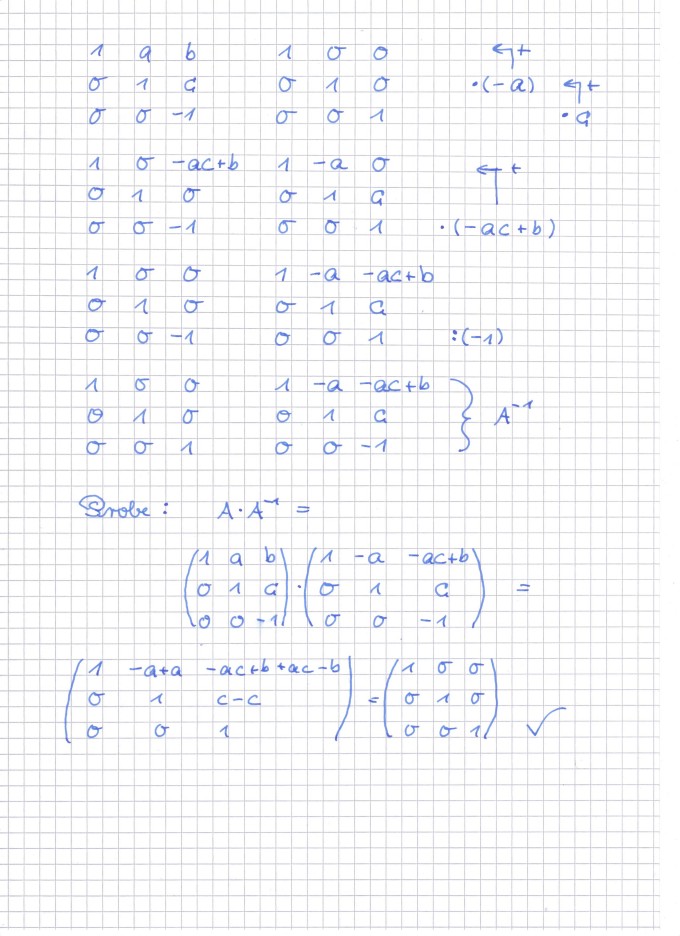 1 a b 1 0 0 ↰+
0 1 c 0 1 0 ·(-a) ↰+
0 0 -1 0 0 1 ·c
1 0 -ac+b 1 -a 0 ↰+
0 1 0 0 1 c
0 0 -1 0 0 1 ·(-ac+b)
1 0 0 1 -a -ac+b
0 1 0 0 1 c
0 0 -1 0 0 1 :(-1)
1 0 0 1 -a -ac+b
0 1 0 0 1 c } A⁻¹
0 0 1 0 0 -1
Probe: A·A⁻¹ =
(1 a b) (1 -a -ac+b)
(0 1 c) · (0 1 c) =
(0 0 -1) (0 0 -1)
(1 -a+a -ac+b+ac-b) (1 0 0)
(0 1 c-c) = (0 1 0)
(0 0 1) (0 0 1) ✓